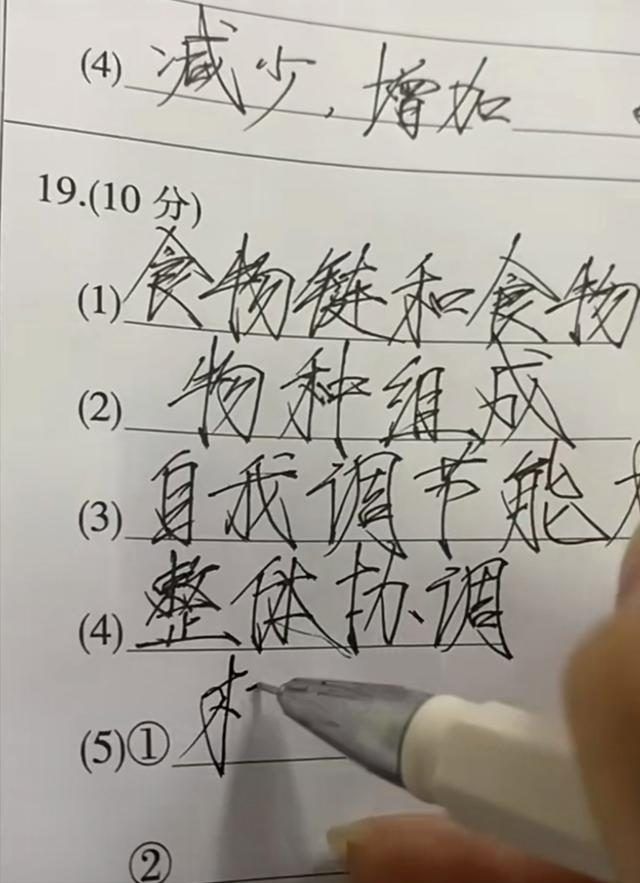 (4) 减少，增加
19.(10 分)
(1) 食物键和食物
(2) 物种组成
(3) 自我调节能
(4) 整体协调
(5)①
②